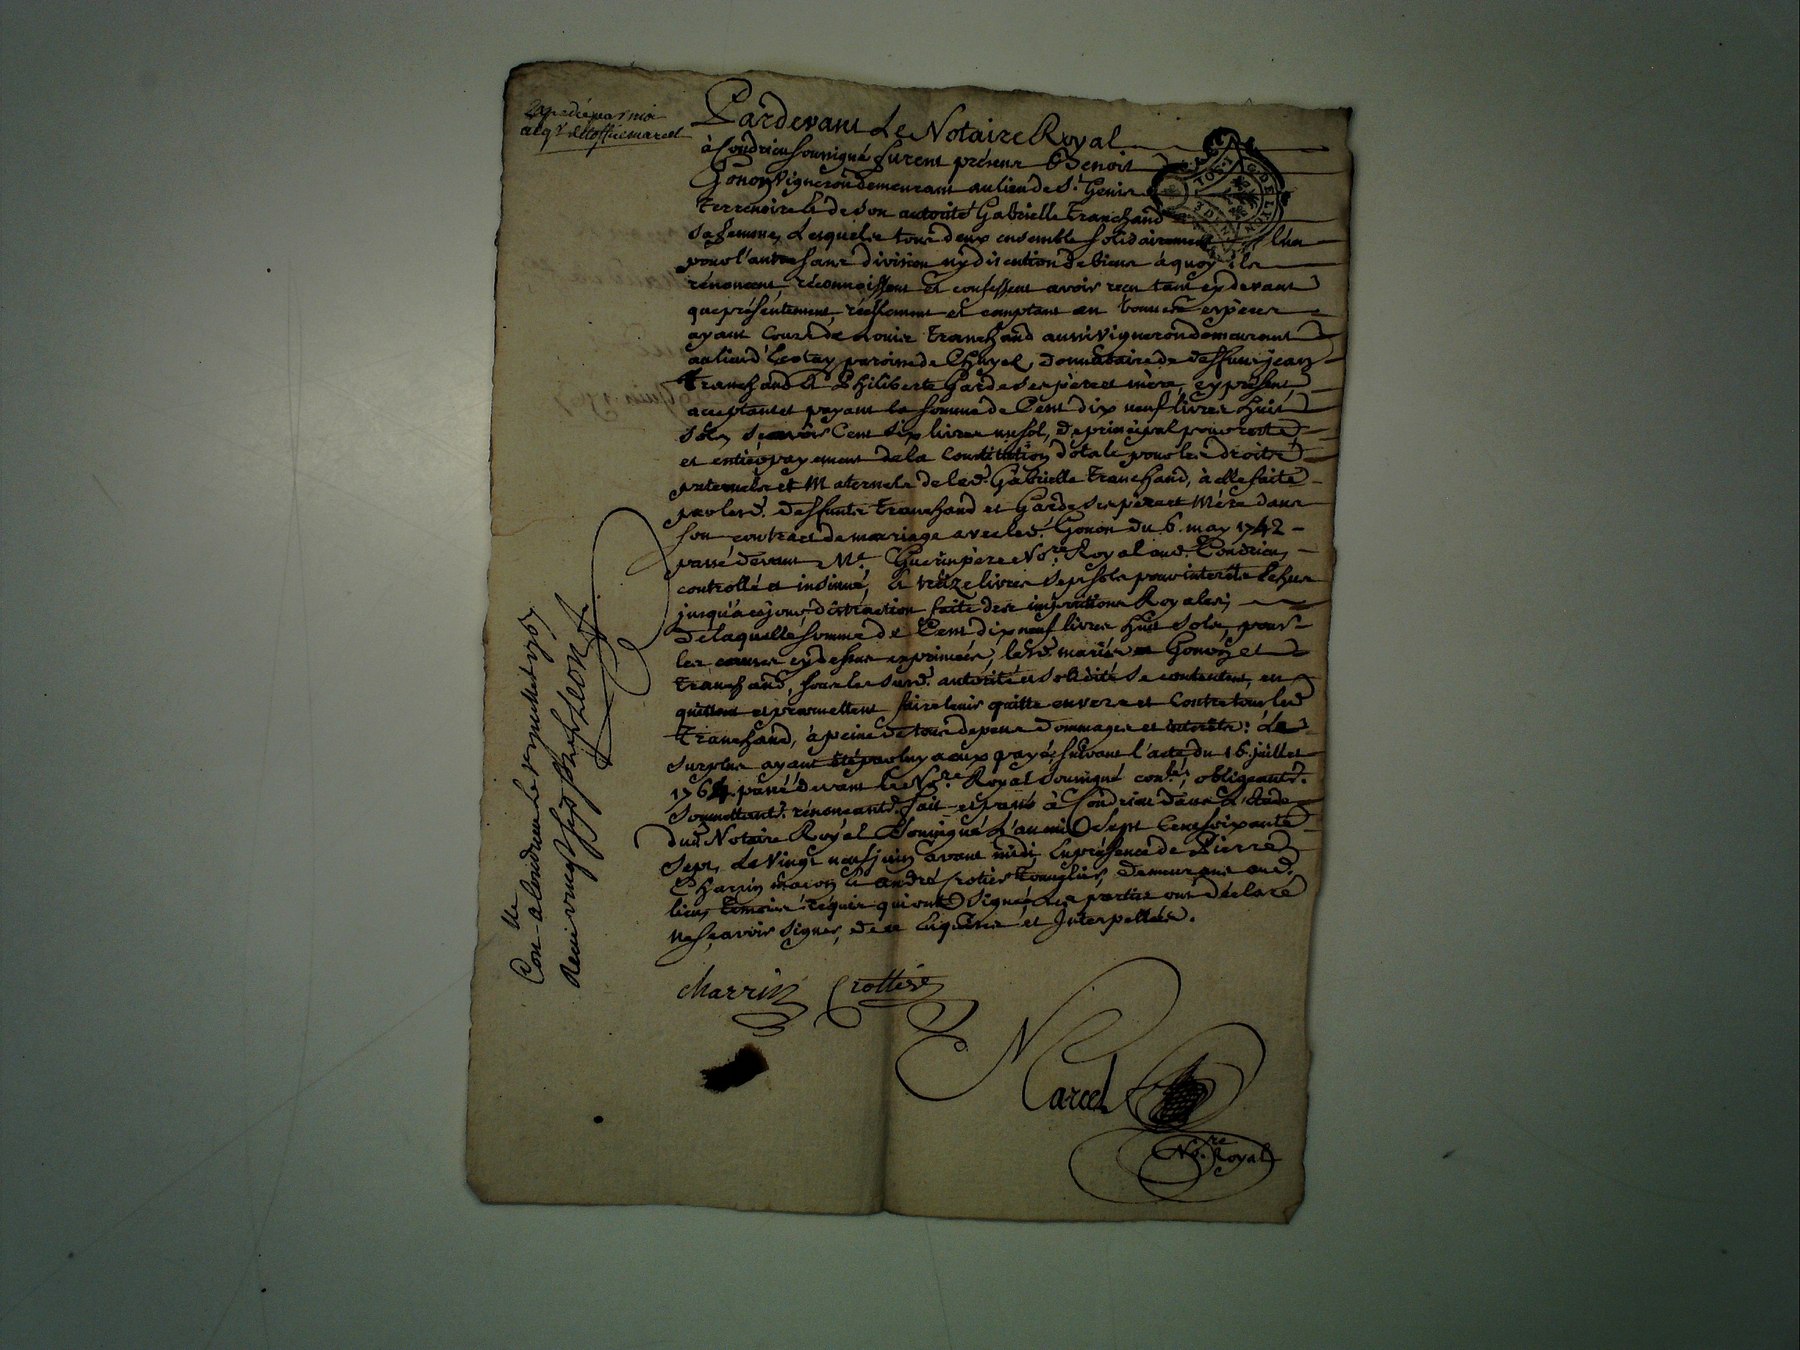 Expedié par moi
acqr. de l'office marcel
Pardevant Le Notaire Royal
à Condrieu soussigné furent présens Benoit
Gonon Vigneron demeurant au lieu de St. Genis
Terrenoire & de son autorité Gabrielle Tranchand
sa femme, Lesquels tous deux ensemble solidairement l'un
pour l'autre sans division ny discution de biens à quoy ils
rénoncent, réconnoissent et confessent avoir recu tant cy devant
que présentement, réellement et comptant en bonnes espèces
ayant cours de Tranchand aussi Vigneron demeurant
au lieu d' paroisse de Chuyel, Donnataire de deffunt jean
Tranchand & Philiberte Garde ses père et mère, cy présent
acceptant et payant la somme de Cent dix neuf livres huit
sols, scavoir Cent six livres un sol, de principal pour reste
et entier payement de la Constitution dotale pour les droits
paternels et Maternels de lad. Gabrielle Tranchand, à elle faite
par lesd. deffunts Tranchand et Garde ses père et Mère dans
son contract de mariage avec led. Gonon du 6. may 1742
passé devant Me. Guerin père Nore. Royal aud. Condrieu,
controllé et insinué, & treize livres sept sols pour intérêts échus
jusqu'à ce jour, distraction faite des impositions Royales;
De laquelle somme de Cent dix neuf livres huit sols, pour
les causes cy dessus exprimées, lesd. mariés Gonon et
Tranchand, sous les susd. autorité et solidité se contentent, en
quittent et promettent faire tenir quitte envers et contre tous led.
Tranchand, à peine de tous depens dommages et intérêts: Le
surplus ayant été par luy a eux payé, suivant l'acte du 16. juillet
1764. passé devant le Nore. Royal soussigné conlé; obligeants.
soumettants. rénonceants. fait et passé à Condrieu dans l'étude
dud. Notaire Royal soussigné L'an mil sept Cent soixante
sept, Le Vingt neuf juin avant midi En présence de Pierre
Charrin macon & andré Crotier demeurans aud.
lieu, témoins réquis qui ont signé, les parties ont déclaré
ne scavoir signer, de ce Enquises et Interpellées.
charrin Crottier
Marcel
Nore. Royal
Conllé a Condrieu le juillet 1767
Recu vingt six sols Leon